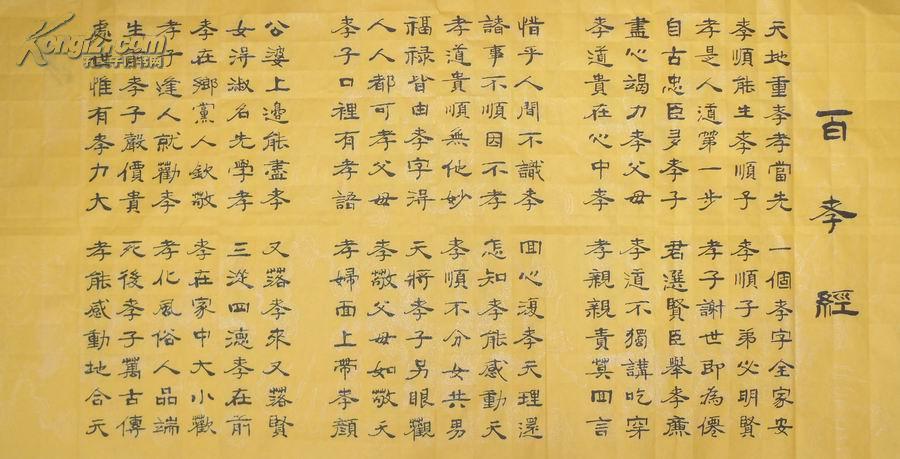 百孝經
天地重孝孝當先 一個孝字全家安
孝順能生孝順子 孝順子弟必明賢
孝是人道第一步 孝子謝世即為僊
自古忠臣多孝子 君選賢臣舉孝廉
盡心竭力孝父母 孝道不獨講吃穿
孝道貴在心中孝 孝親親責莫回言
惜乎人間不識孝 回心復孝天理還
諸事不順因不孝 怎知孝能感動天
孝道貴順無他妙 孝順不分女共男
福祿皆由孝字得 天將孝子另眼觀
人人都可孝父母 孝敬父母如敬天
孝子口裡有孝語 孝婦面上帶孝顏
公婆上邊能盡孝 又落孝來又落賢
女得淑名先學孝 三從四德孝在前
孝在鄉黨人欽敬 孝在家中大小歡
孝子逢人就勸孝 孝化風俗人品端
生前孝子聲價貴 死後孝子萬古傳
處世惟有孝力大 孝能感動地合天
Kongfz.com
孔夫子旧书网